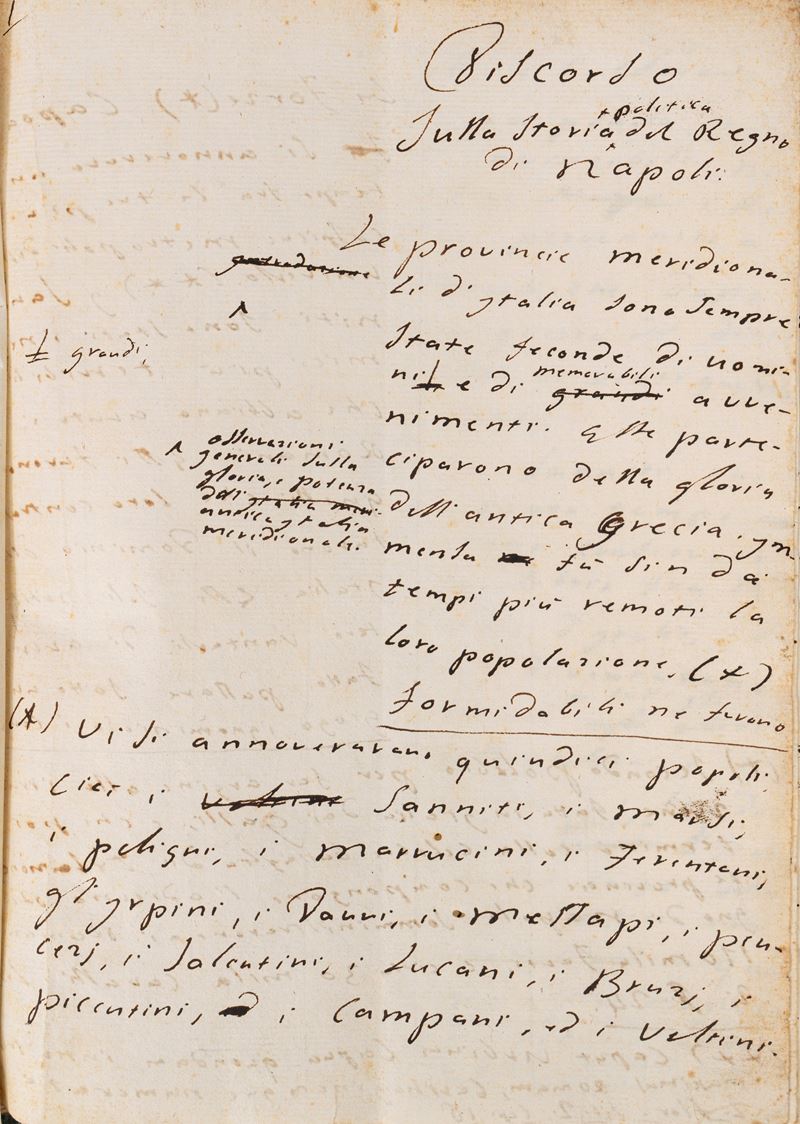 1
Discorso
+ politica
Sulla Storia del Regno
di Napoli.
Le provincie meridiona-
introduzione
li d'Italia sono sempre
state feconde di uomi-
± grandi,
ni e di grandi avve-
memorabili
nimenti. Esse parte-
ciparono della gloria
dell'antica Grecia. Im-
mensa fù sin da'
tempi più remoti la
loro popolazione. (A)
Formidabili ne furono
^ osservazioni
generali sulla
gloria, e potenza
dell'Italia meri-
antica Italia
meridionale.
(A) Vi si annoveravano quindici popoli,
cioè i Volsini Sanniti, i Marsi,
i peligni, i Marrucini, i Ferentani,
gl'Irpini, i Dauni, i Messapi, i peu-
cezj, i Salentini, i Lucani, i Bruzj, i
piccentini, ed i Campani, ed i Vestini.